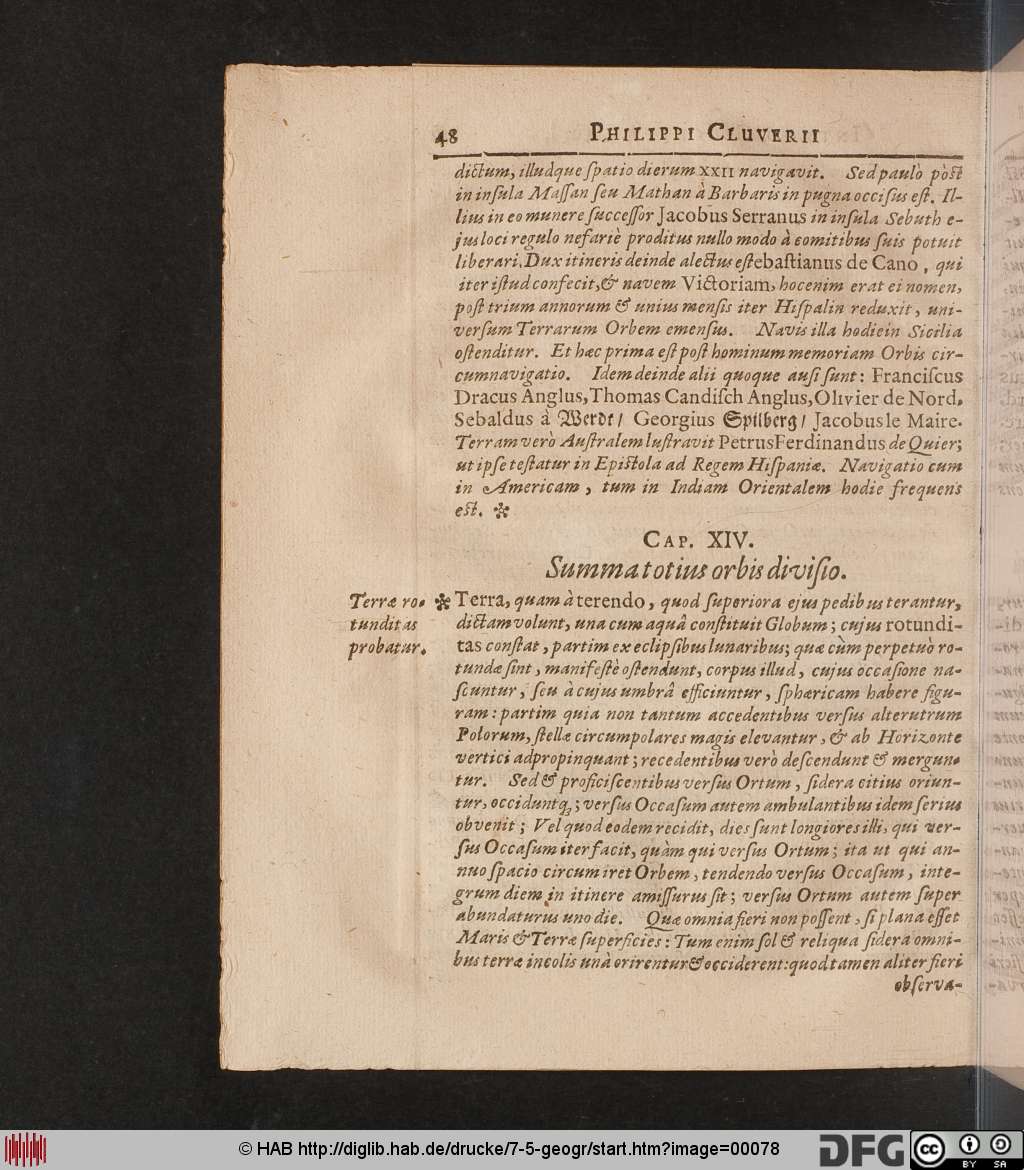 48 PHILIPPI CLUVERII
dictum, illudque ſpatio dierum XXII navigavit. Sed paulò pòst
in inſula Maſſan ſeu Mathan à Barbaris in pugna occiſus eſt. Il-
lius in eo munere ſucceſſor Jacobus Serranus in inſula Sebuth e-
jus loci regulo nefariè proditus nullo modo à comitibus ſuis potuit
liberari. Dux itineris deinde alectus eſtebaſtianus de Cano, qui
iter iſtud confecit, & navem Victoriam, hoc enim erat ei nomen,
poſt trium annorum & unius menſis iter Hiſpalin reduxit, uni-
verſum Terrarum Orbem emenſus. Navis illa hodie in Sicilia
oſtenditur. Et hæc prima eſt poſt hominum memoriam Orbis cir-
cumnavigatio. Idem deinde alii quoque auſi ſunt: Franciſcus
Dracus Anglus, Thomas Candiſch Anglus, Olivier de Nord.
Sebaldus à Werdt/ Georgius Spilberg/ Jacobus le Maire.
Terram verò Auſtralem luſtravit Petrus Ferdinandus de Quier;
ut ipſe teſtatur in Epiſtola ad Regem Hiſpaniæ. Navigatio cum
in Americam, tum in Indiam Orientalem hodie frequens
est. ✲
CAP. XIV.
Summa totius orbis diviſio.
Terræ ro-
tunditas
probatur.
✲ Terra, quam à terendo, quod ſuperiora ejus pedibus terantur,
dictam volunt, una cum aquâ conſtituit Globum; cujus rotundi-
tas conſtat, partim ex eclipſibus lunaribus; quæ cùm perpetuò ro-
tundæ ſint, manifeſtè oſtendunt, corpus illud, cujus occaſione na-
ſcuntur, ſeu à cujus umbrâ efficiuntur, ſphæricam habere figu-
ram: partim quia non tantum accedentibus verſus alterutrum
Polorum, ſtellæ circumpolares magis elevantur, & ab Horizonte
vertici adpropinquant; recedentibus verò deſcendunt & mergun-
tur. Sed & proficiſcentibus verſus Ortum, ſidera citius oriun-
tur, occiduntq́; verſus Occaſum autem ambulantibus idem ſerius
obvenit; Vel quod eodem recidit, dies ſunt longiores illi, qui ver-
ſus Occaſum iter facit, quàm qui verſus Ortum; ita ut qui an-
nuo ſpacio circumiret Orbem, tendendo verſus Occaſum, inte-
grum diem in itinere amiſſurus ſit; verſus Ortum autem ſuper
abundaturus uno die. Quæ omnia fieri non poſſent, ſi plana eſſet
Maris & Terræ ſuperficies: Tum enim ſol & reliqua ſidera omni-
bus terræ incolis unà orirentur & occiderent: quod tamen aliter fieri
obſerva-
© HAB http://diglib.hab.de/drucke/7-5-geogr/start.htm?image=00078
DFG cc BY SA